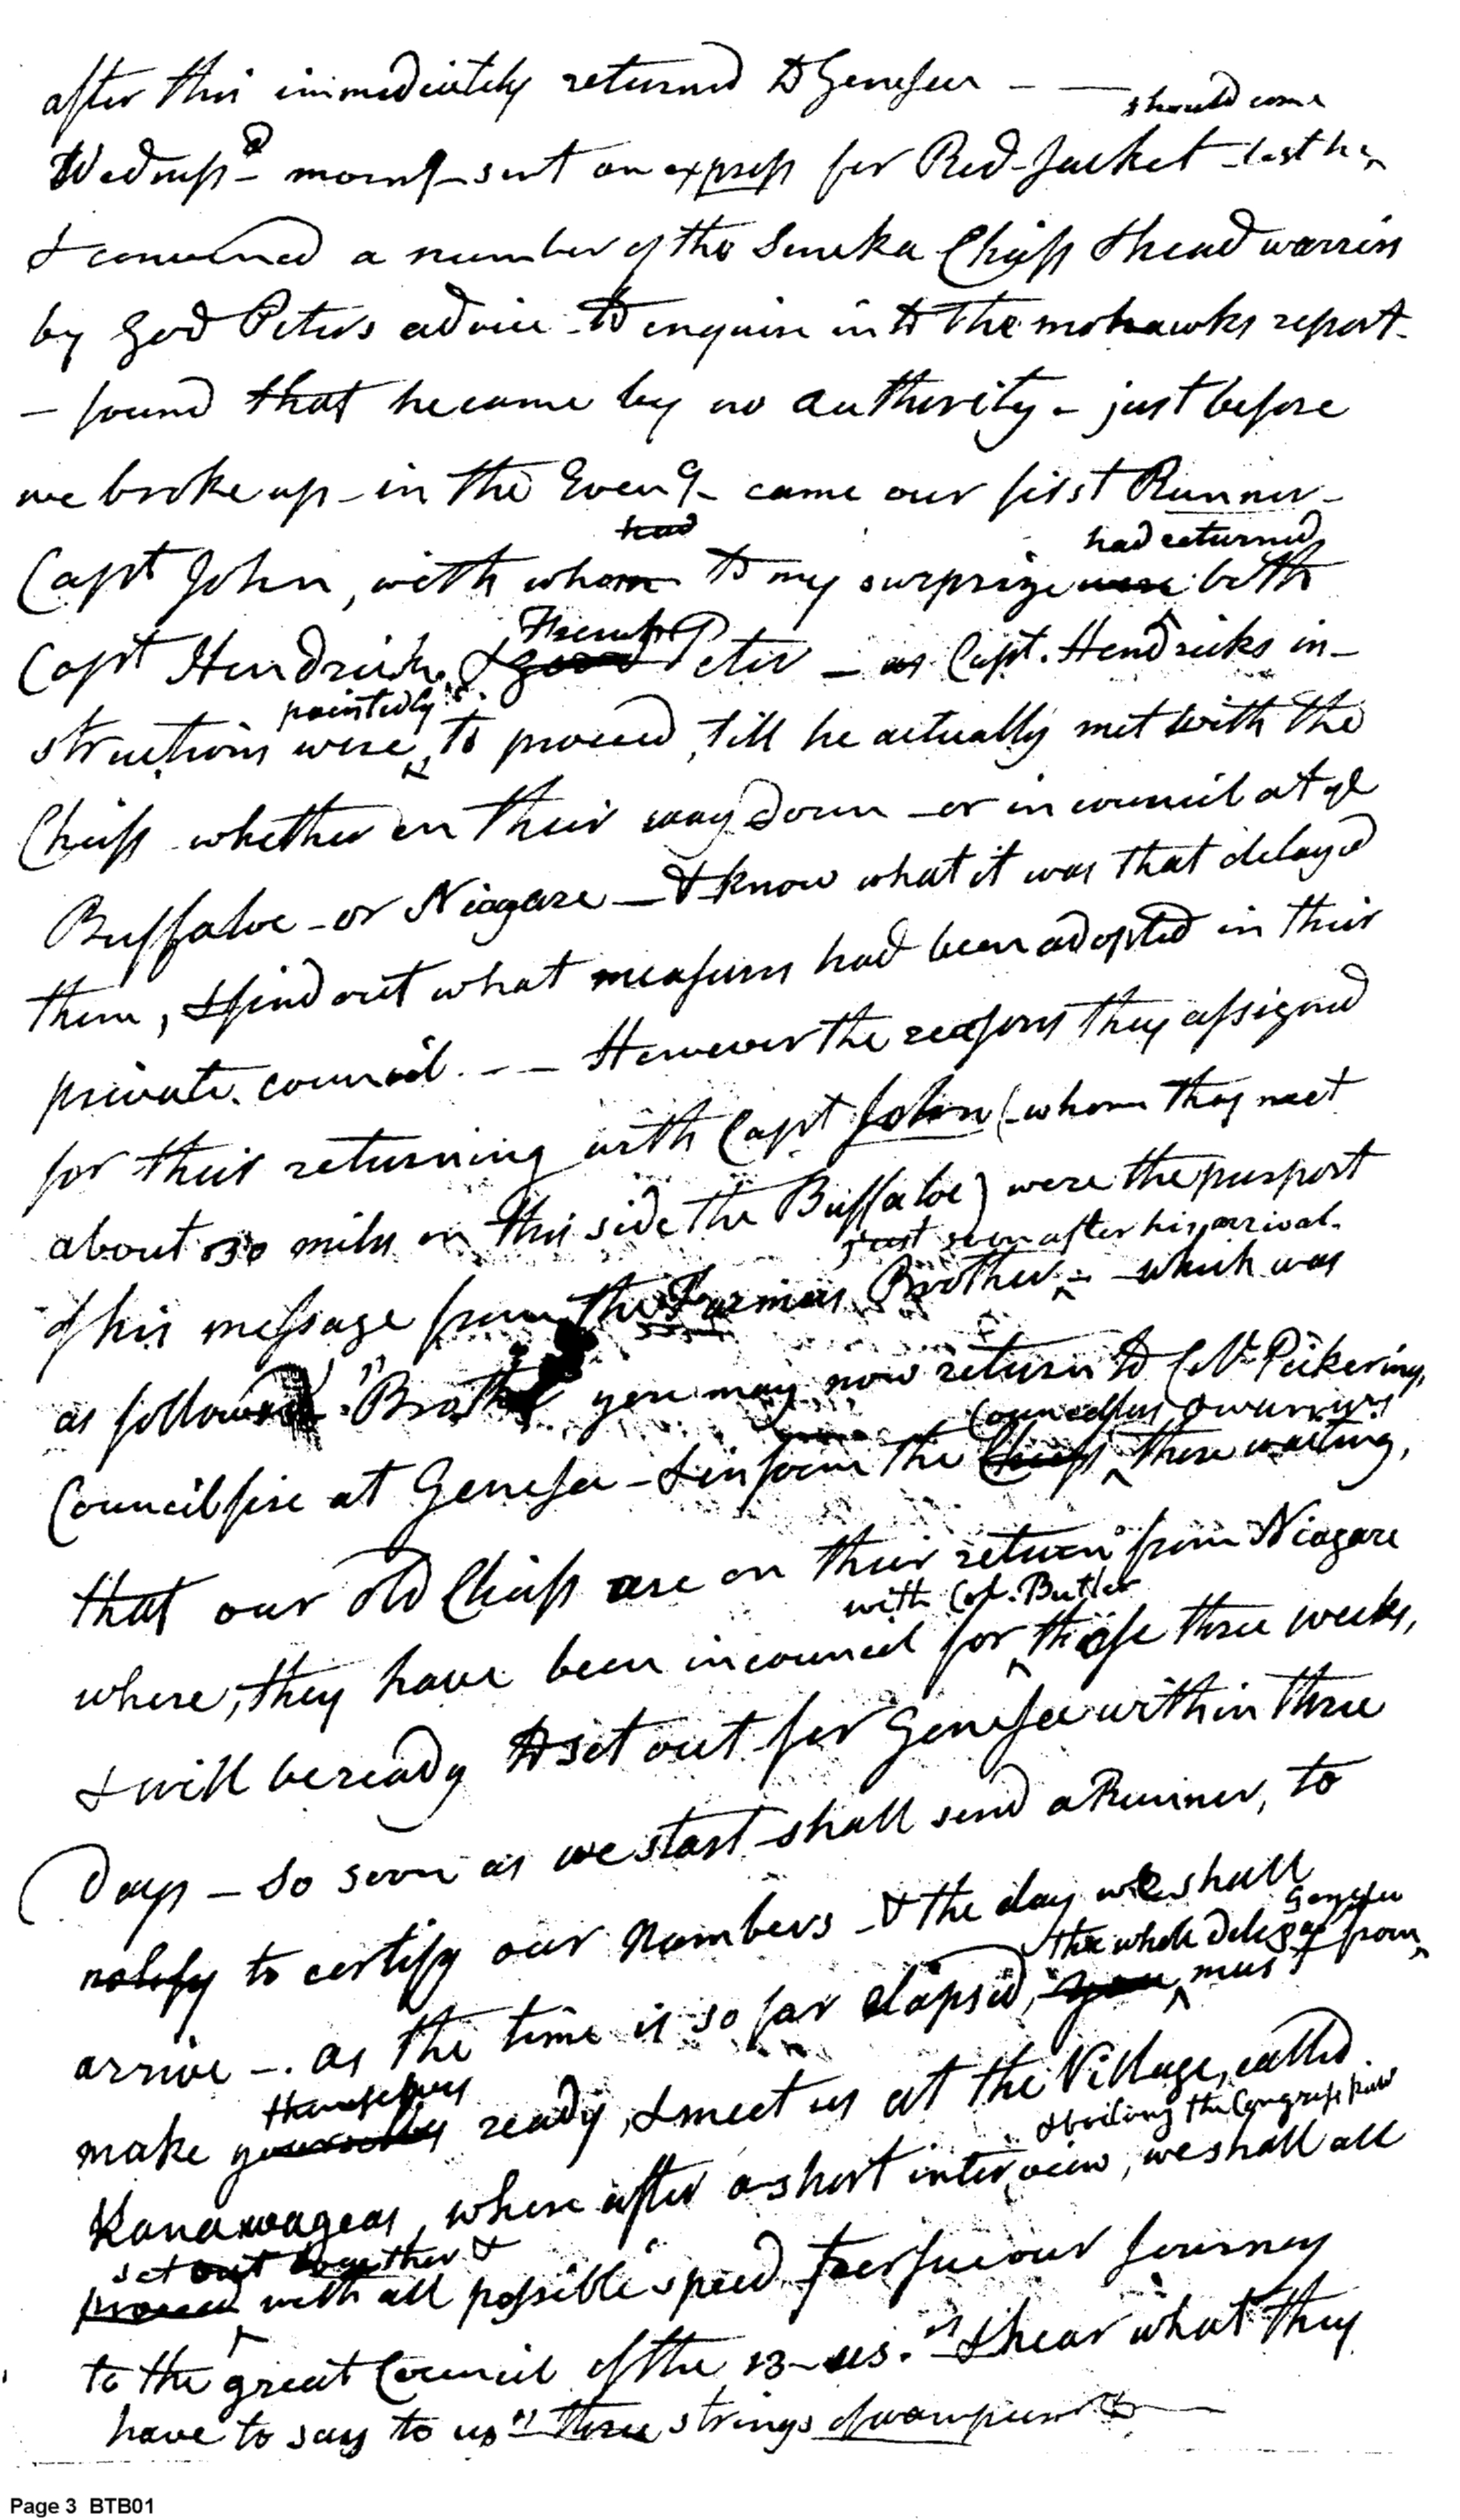 after this immediately returned to Genesee — —
should come
Wednessd morng — sent an express for Red-Jacket — lest he
& convened a number of the Seneka Chiefs & head warriors
by Good Peters advice — to enquire into the mohawks report —
— found that he came by no authority — just before
we broke up — in the Eveng — came our first Runner —
had had returned
Capt John, with whom to my surprize were both
French
Capt Hendrick, & good Peter — as Capt. Hendricks in-
pointedly
structions were to proceed, till he actually met with the
Chiefs whether on their way down — or in council at ye
Buffaloe — or Niagare — & know what it was that delayed
them, & find out what measures had been adopted in their
private council. — — However the reasons they assigned
for their returning with Capt John (whom they meet
about 30 miles on this side the Buffaloe) were the purport
just soon after his arrival.
of his message from the Farmers Brother — which was
as follows "Brother you may now return to Coln Pickering,
Councellors & warriors
Council fire at Genesee — & inform the Chiefs there waiting,
that our old Chiefs are on their return from Niagare
with Col. Butler
where, they have been in council for these three weeks,
& will be ready to set out for Genesee within three
Days — So soon as we start shall send a Runner, to
notify to certify our Numbers — & the day we shall
Genesee
the whole from
arrive —. as the time is so far elapsed, you must
themselves
make yourselves ready, & meet us at the Village, called
& boiling the Congress
Kanawageas, where after a short interview, we shall all
set out together &
proceed with all possible speed persue our Journey
to the great Council of the 13 — us." & hear what they
have to say to us" three strings of wampum
Page 3 BTB01